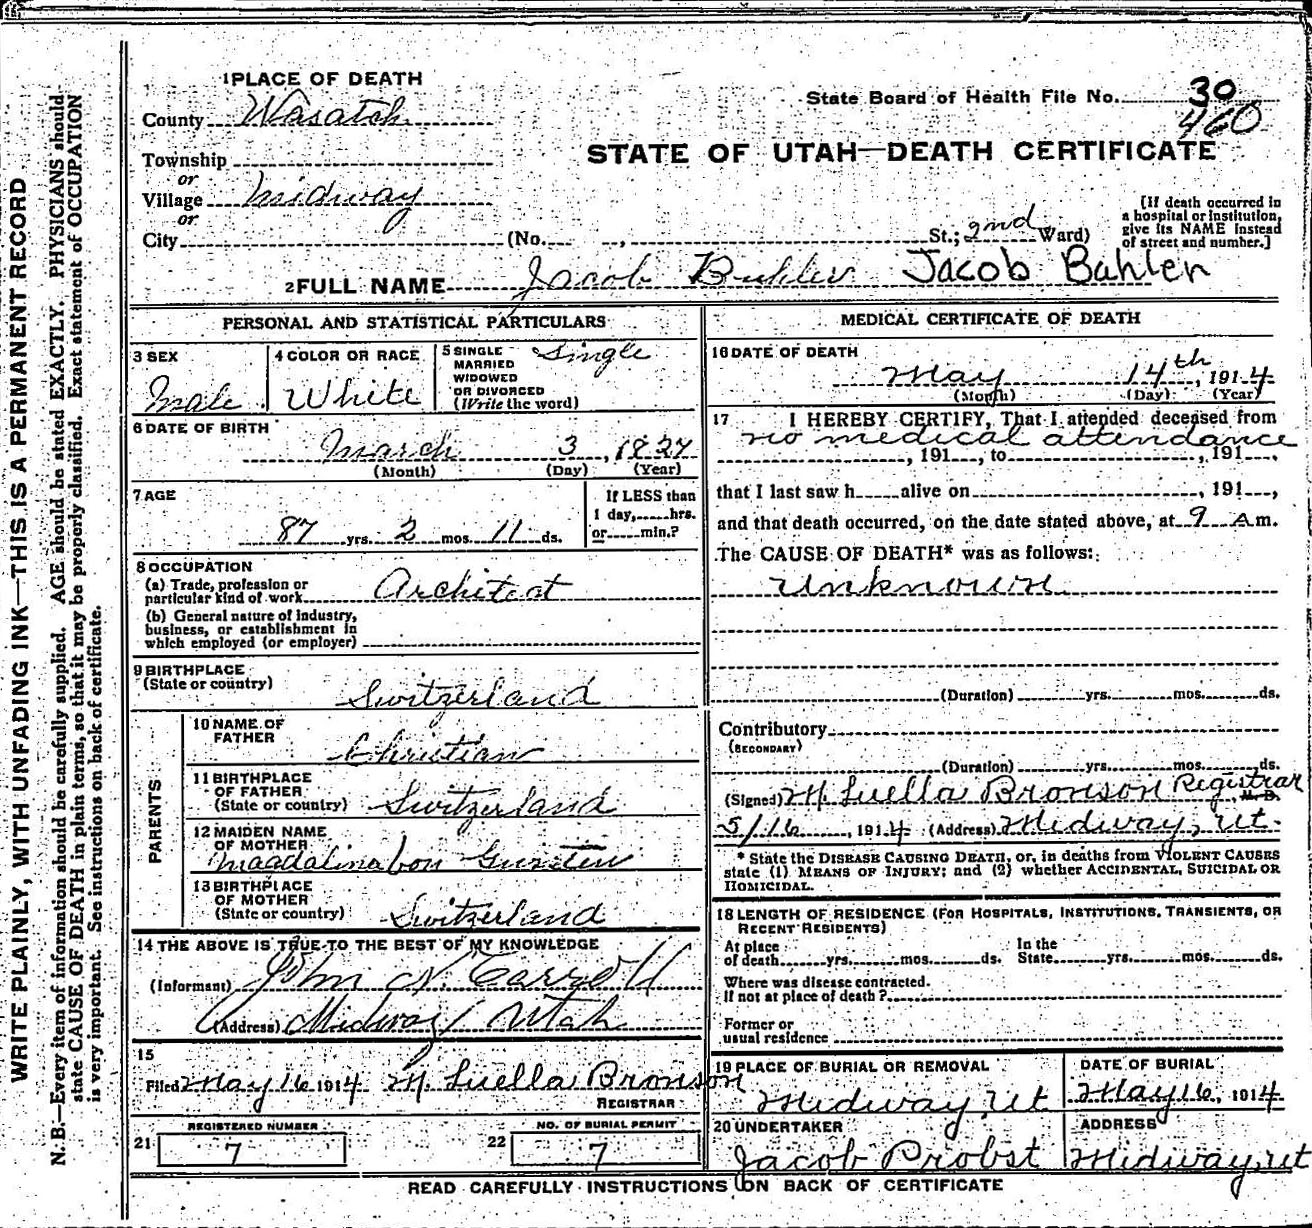 WRITE PLAINLY, WITH UNFADING INK—THIS IS A PERMANENT RECORD
N. B.—Every item of information should be carefully supplied. AGE should be stated EXACTLY. PHYSICIANS should
state CAUSE OF DEATH in plain terms, so that it may be properly classified. Exact statement of OCCUPATION
is very important. See instructions on back of certificate.
1 PLACE OF DEATH
County Wasatch
State Board of Health File No. 30
460
STATE OF UTAH—DEATH CERTIFICATE
Township
or
Village Midway
or
City (No. , St.; 2nd Ward)
[If death occurred in
a hospital or institution,
give its NAME instead
of street and number.]
2 FULL NAME Jacob Buhler Jacob Buhler
PERSONAL AND STATISTICAL PARTICULARS
3 SEX
Male
4 COLOR OR RACE
White
5 SINGLE
MARRIED
WIDOWED
OR DIVORCED
(Write the word)
Single
6 DATE OF BIRTH
March 3, 1827
(Month) (Day) (Year)
7 AGE
87 yrs. 2 mos. 11 ds.
If LESS than
1 day, hrs.
or min.?
8 OCCUPATION
(a) Trade, profession or
particular kind of work Architect
(b) General nature of industry,
business, or establishment in
which employed (or employer)
9 BIRTHPLACE
(State or country)
Switzerland
PARENTS
10 NAME OF
FATHER
Christian
11 BIRTHPLACE
OF FATHER
(State or country) Switzerland
12 MAIDEN NAME
OF MOTHER
Magdalina
13 BIRTHPLACE
OF MOTHER
(State or country) Switzerland
14 THE ABOVE IS TRUE TO THE BEST OF MY KNOWLEDGE
(Informant) John N. Carroll
(Address) Midway Utah
15
Filed May 16 1914 M. Luella Bronson
REGISTRAR
REGISTERED NUMBER
21 7
NO. OF BURIAL PERMIT
22 7
MEDICAL CERTIFICATE OF DEATH
16 DATE OF DEATH
May 14th, 1914
(Month) (Day) (Year)
17 I HEREBY CERTIFY, That I attended deceased from
no medical attendance
, 191 , to , 191 ,
that I last saw h alive on , 191 ,
and that death occurred, on the date stated above, at 9 A m.
The CAUSE OF DEATH* was as follows:
Unknown
(Duration) yrs. mos. ds.
Contributory
(SECONDARY)
(Duration) yrs. mos. ds.
(Signed) M. Luella Bronson Registrar M. D.
5/16, 1914 (Address) Midway, Ut.
* State the DISEASE CAUSING DEATH, or, in deaths from VIOLENT CAUSES
state (1) MEANS OF INJURY; and (2) whether ACCIDENTAL, SUICIDAL OR
HOMICIDAL.
18 LENGTH OF RESIDENCE (FOR HOSPITALS, INSTITUTIONS, TRANSIENTS, OR
RECENT RESIDENTS)
At place
of death yrs. mos. ds.
In the
State yrs. mos. ds.
Where was disease contracted.
If not at place of death?
Former or
usual residence
19 PLACE OF BURIAL OR REMOVAL
Midway, Ut
DATE OF BURIAL
May 16, 1914
20 UNDERTAKER
Jacob Probst
ADDRESS
Midway, Ut
READ CAREFULLY INSTRUCTIONS ON BACK OF CERTIFICATE